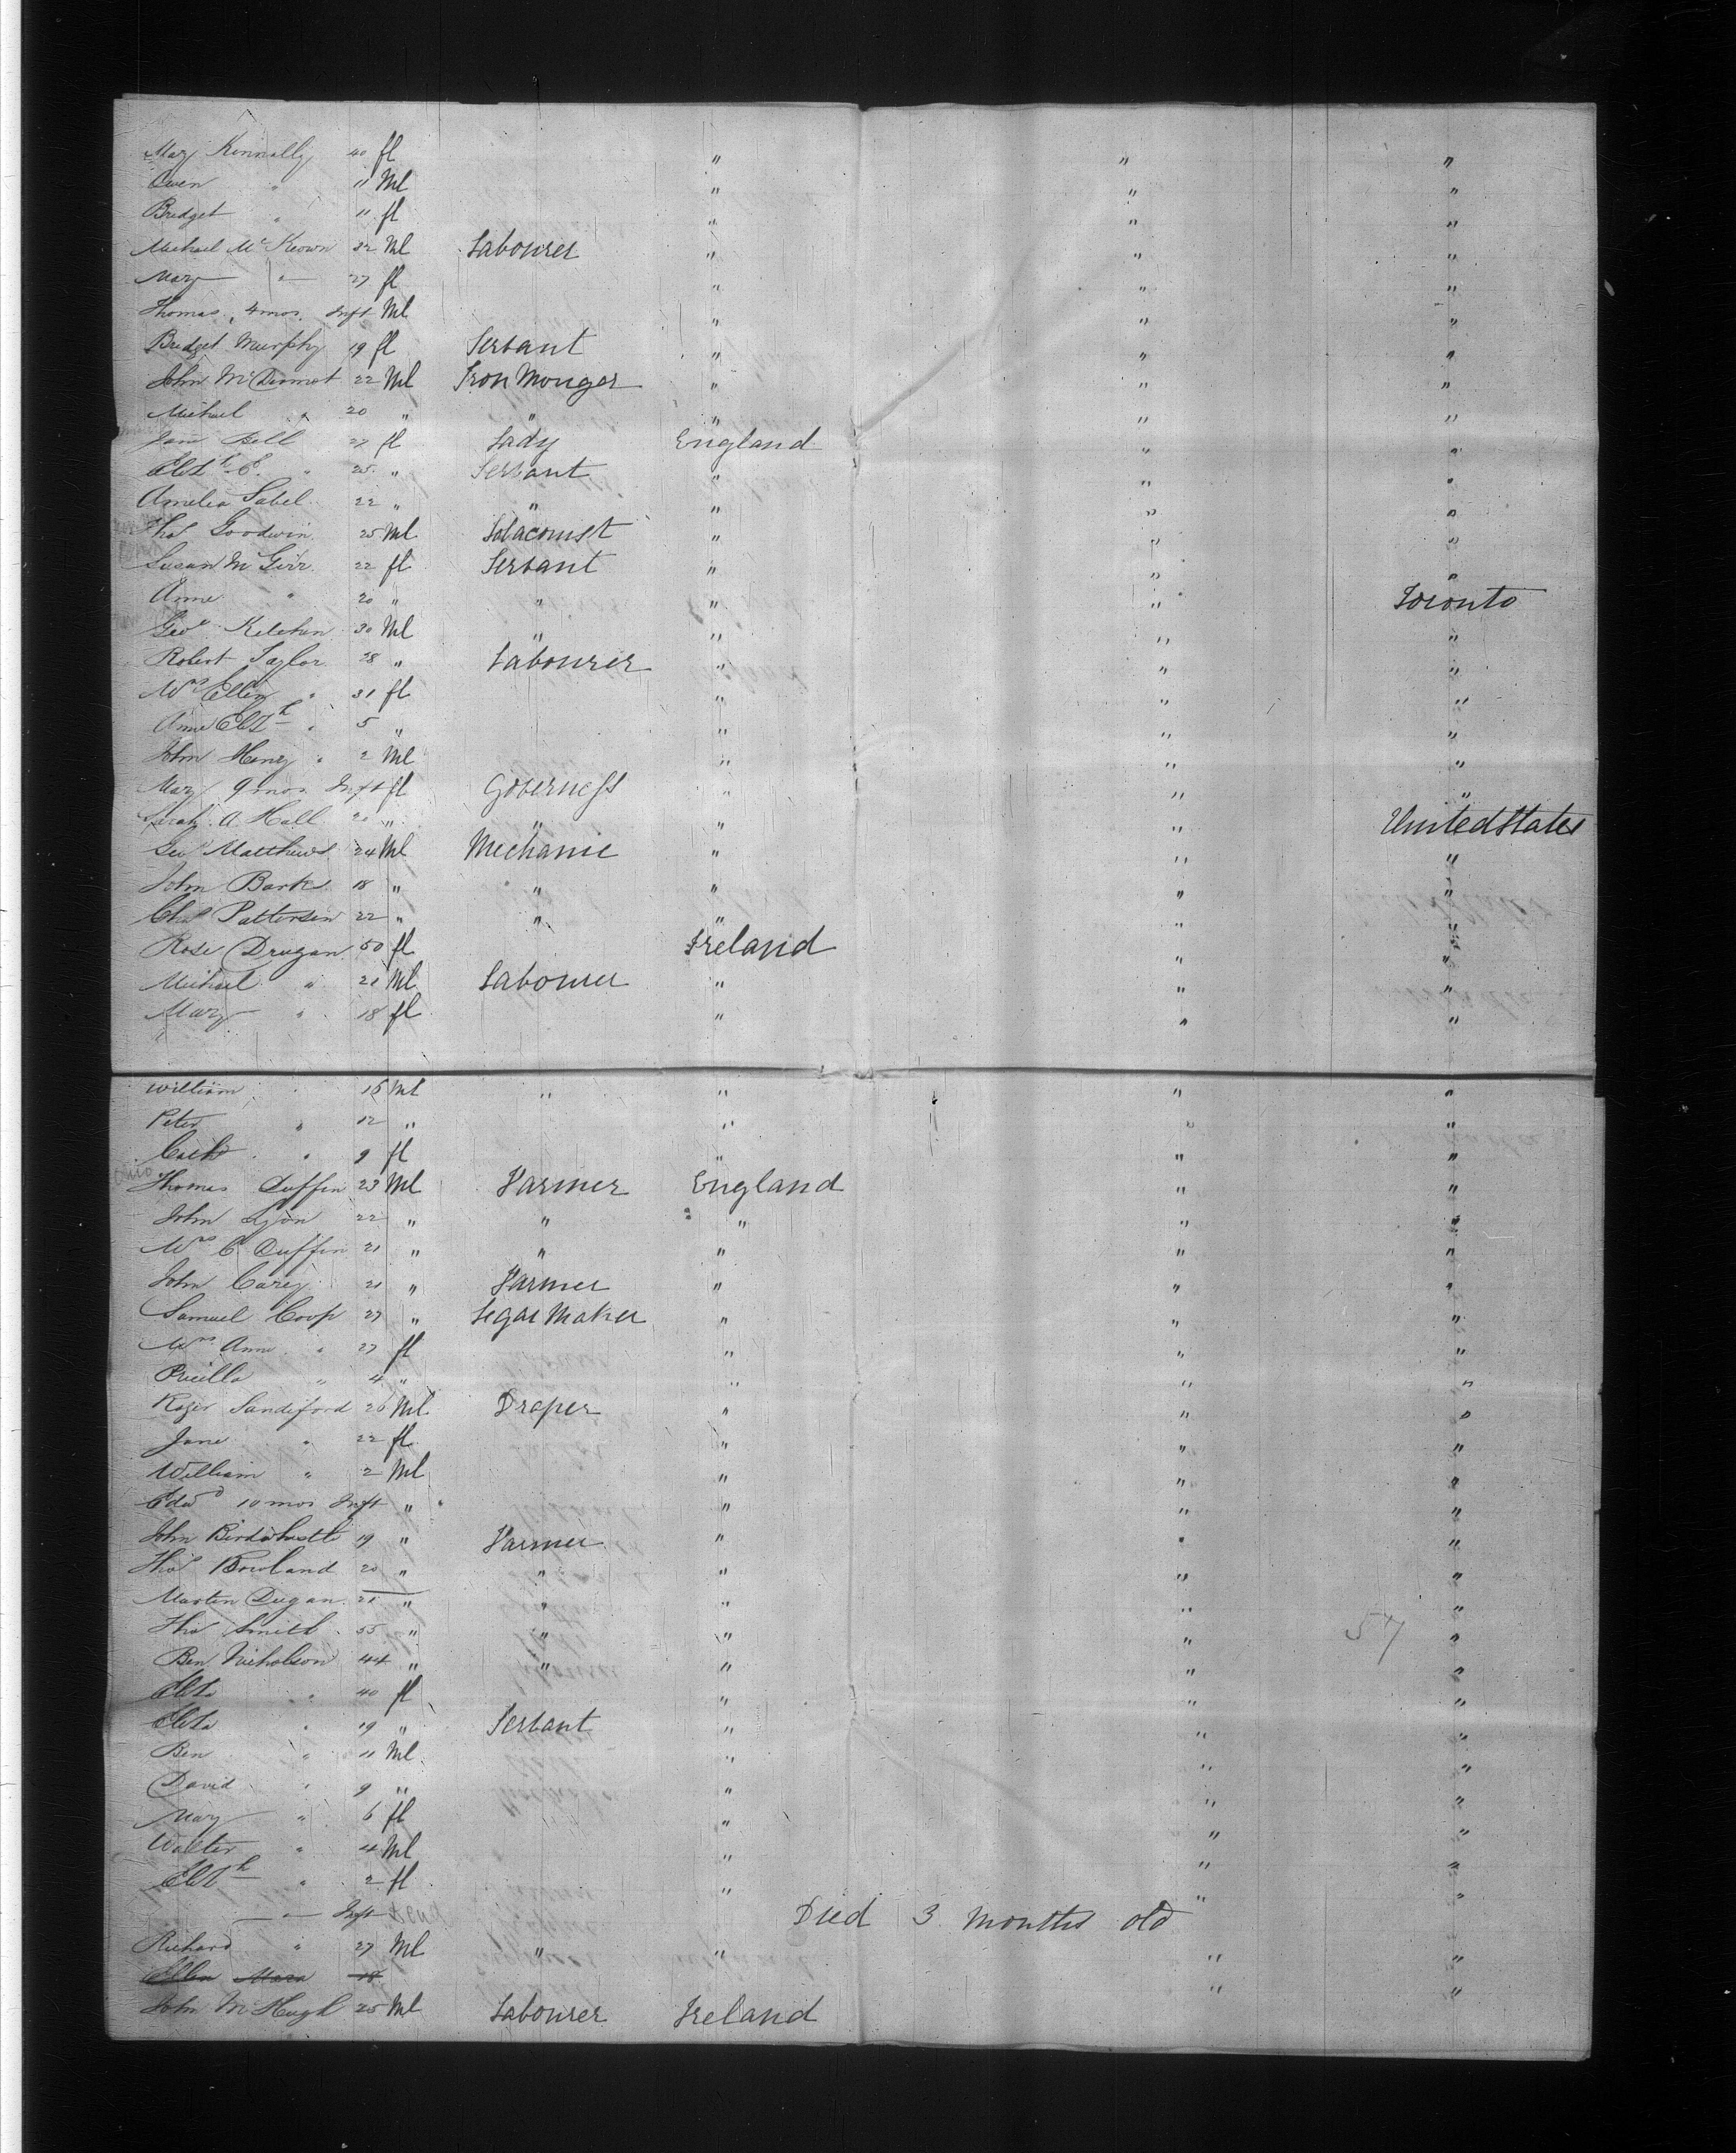 Mary Kennally 40 fl " " "
Owen " 11 Ml " " "
Bridget " 11 fl " " "
Michael McKeown 32 Ml Labourer " " "
Mary " 27 fl " " "
Thomas, 4 mos. Inft Ml " " "
Bridget Murphy 19 fl Servant " " "
John McDermot 22 Ml Iron Monger " " "
Michael " 20 " " " " "
Jane Bell 27 fl Lady England " "
Elizth E. " 25 " Servant " " "
Amelia Sabel 22 " " " " "
Thos Goodwin 25 Ml Tobaconist " " "
Susan McGirr 22 fl Servant " " "
Anne " 20 " " " " Toronto
Geoe Kelehan 30 Ml " " " "
Robert Taylor 28 " Labourer " " "
Mrs Ellen " 31 fl " " "
Anne Elizth " 5 " " " "
John Henry " 2 Ml " " "
Mary 9 mos Inft fl Governess " " "
Sarah A. Hall " " " " " United States
Geo Matthews 24 Ml Mechanic " " "
John Barke 18 " " " " "
Chas Patterson 22 " " " " "
Rose Drugan 50 fl Ireland " "
Michael " 21 Ml Labourer " " "
Mary " 18 fl " " "
William " 15 Ml " " " "
Peter " 12 " " " "
Cath " 9 fl " " "
Ohio
Thomas Duffin 23 Ml Farmer England " "
John Lyon 22 " " " " "
Wm C Duffin 21 " " " " "
John Carey 21 " Farmer " " "
Samuel Coop 27 " Segar Maker " " "
Mrs Ann " 27 fl " " "
Pricilla " 4 " " " "
Roger Sandiford 26 Ml Draper " " "
Jane " 22 fl " " "
William " 2 Ml " " "
Edwd 10 mos Inft " " " "
John Birdwhistle 19 " Farmer " " "
Thos Bowland 20 " " " " "
Martin Dugan 21 " " " " "
Thos Smith 55 " " " " 57 "
Ben Nicholson 44 " " " " "
Eliza " 40 fl " " "
Eliza " 19 " Servant " " "
Ben " 11 Ml " " "
David " 9 " " " "
Mary " 6 fl " " "
Walter " 4 Ml " " "
Elizth " 2 fl " " "
" Inft Dead Died 3 months old
Richard " 27 Ml " " " "
Ellen Mara 18 " "
John McHugh 25 Ml Labourer Ireland